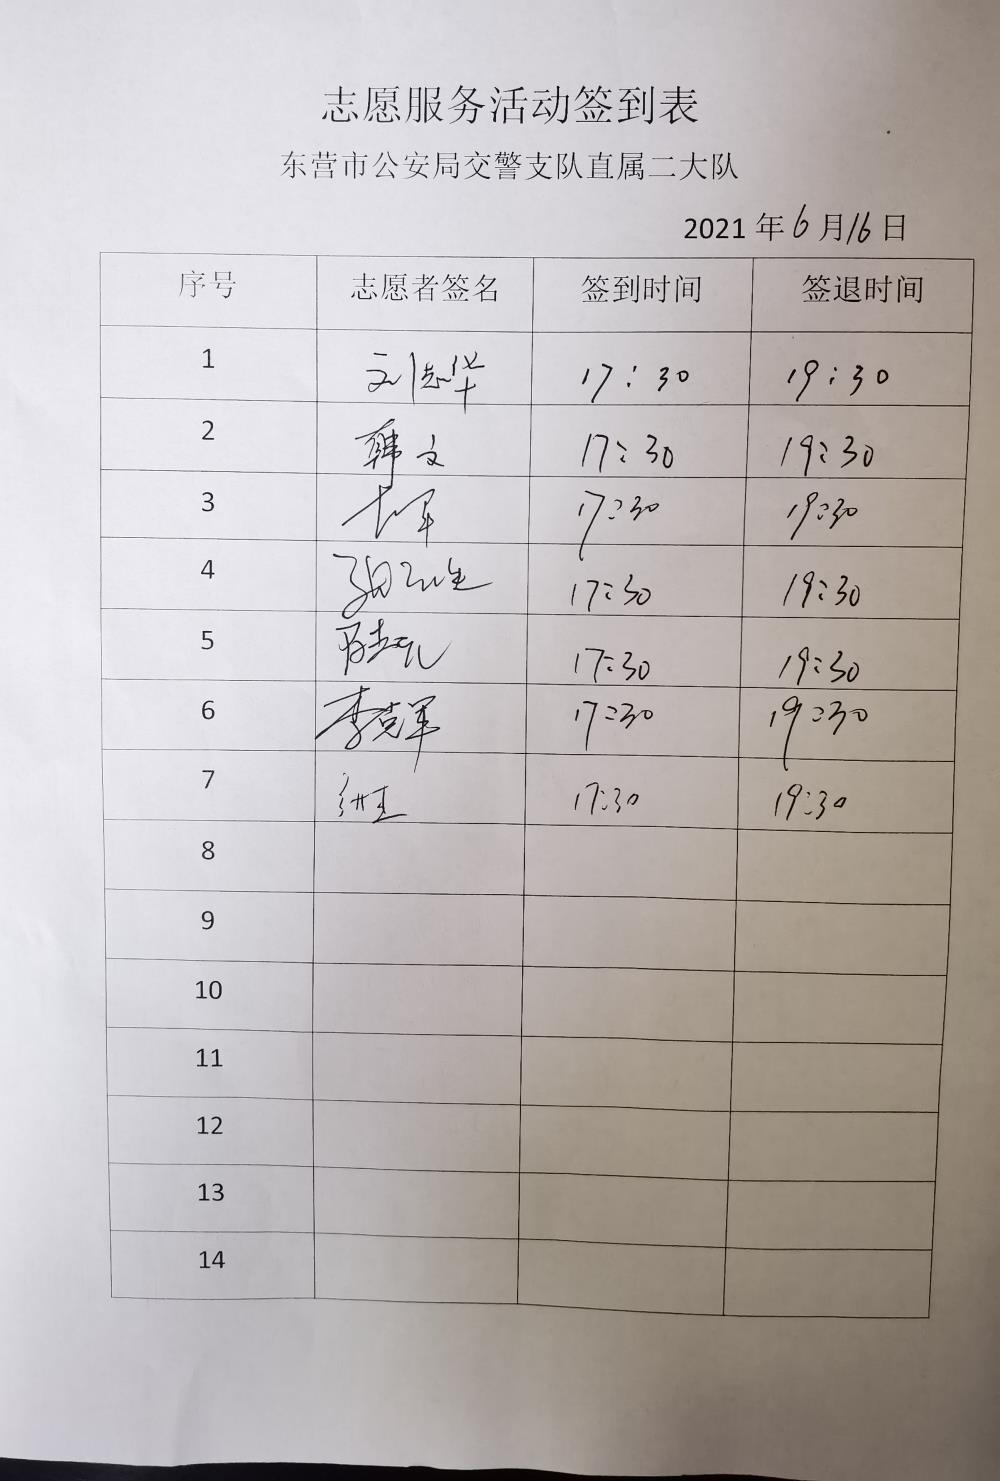 志愿服务活动签到表
东营市公安局交警支队直属二大队
2021 年 6 月 16 日
序号 志愿者签名 签到时间 签退时间
1 刘志华 17:30 19:30
2 韩文 17:30 19:30
3 17:30 19:30
4 17:30 19:30
5 17:30 19:30
6 李克军 17:30 19:30
7 17:30 19:30
8
9
10
11
12
13
14